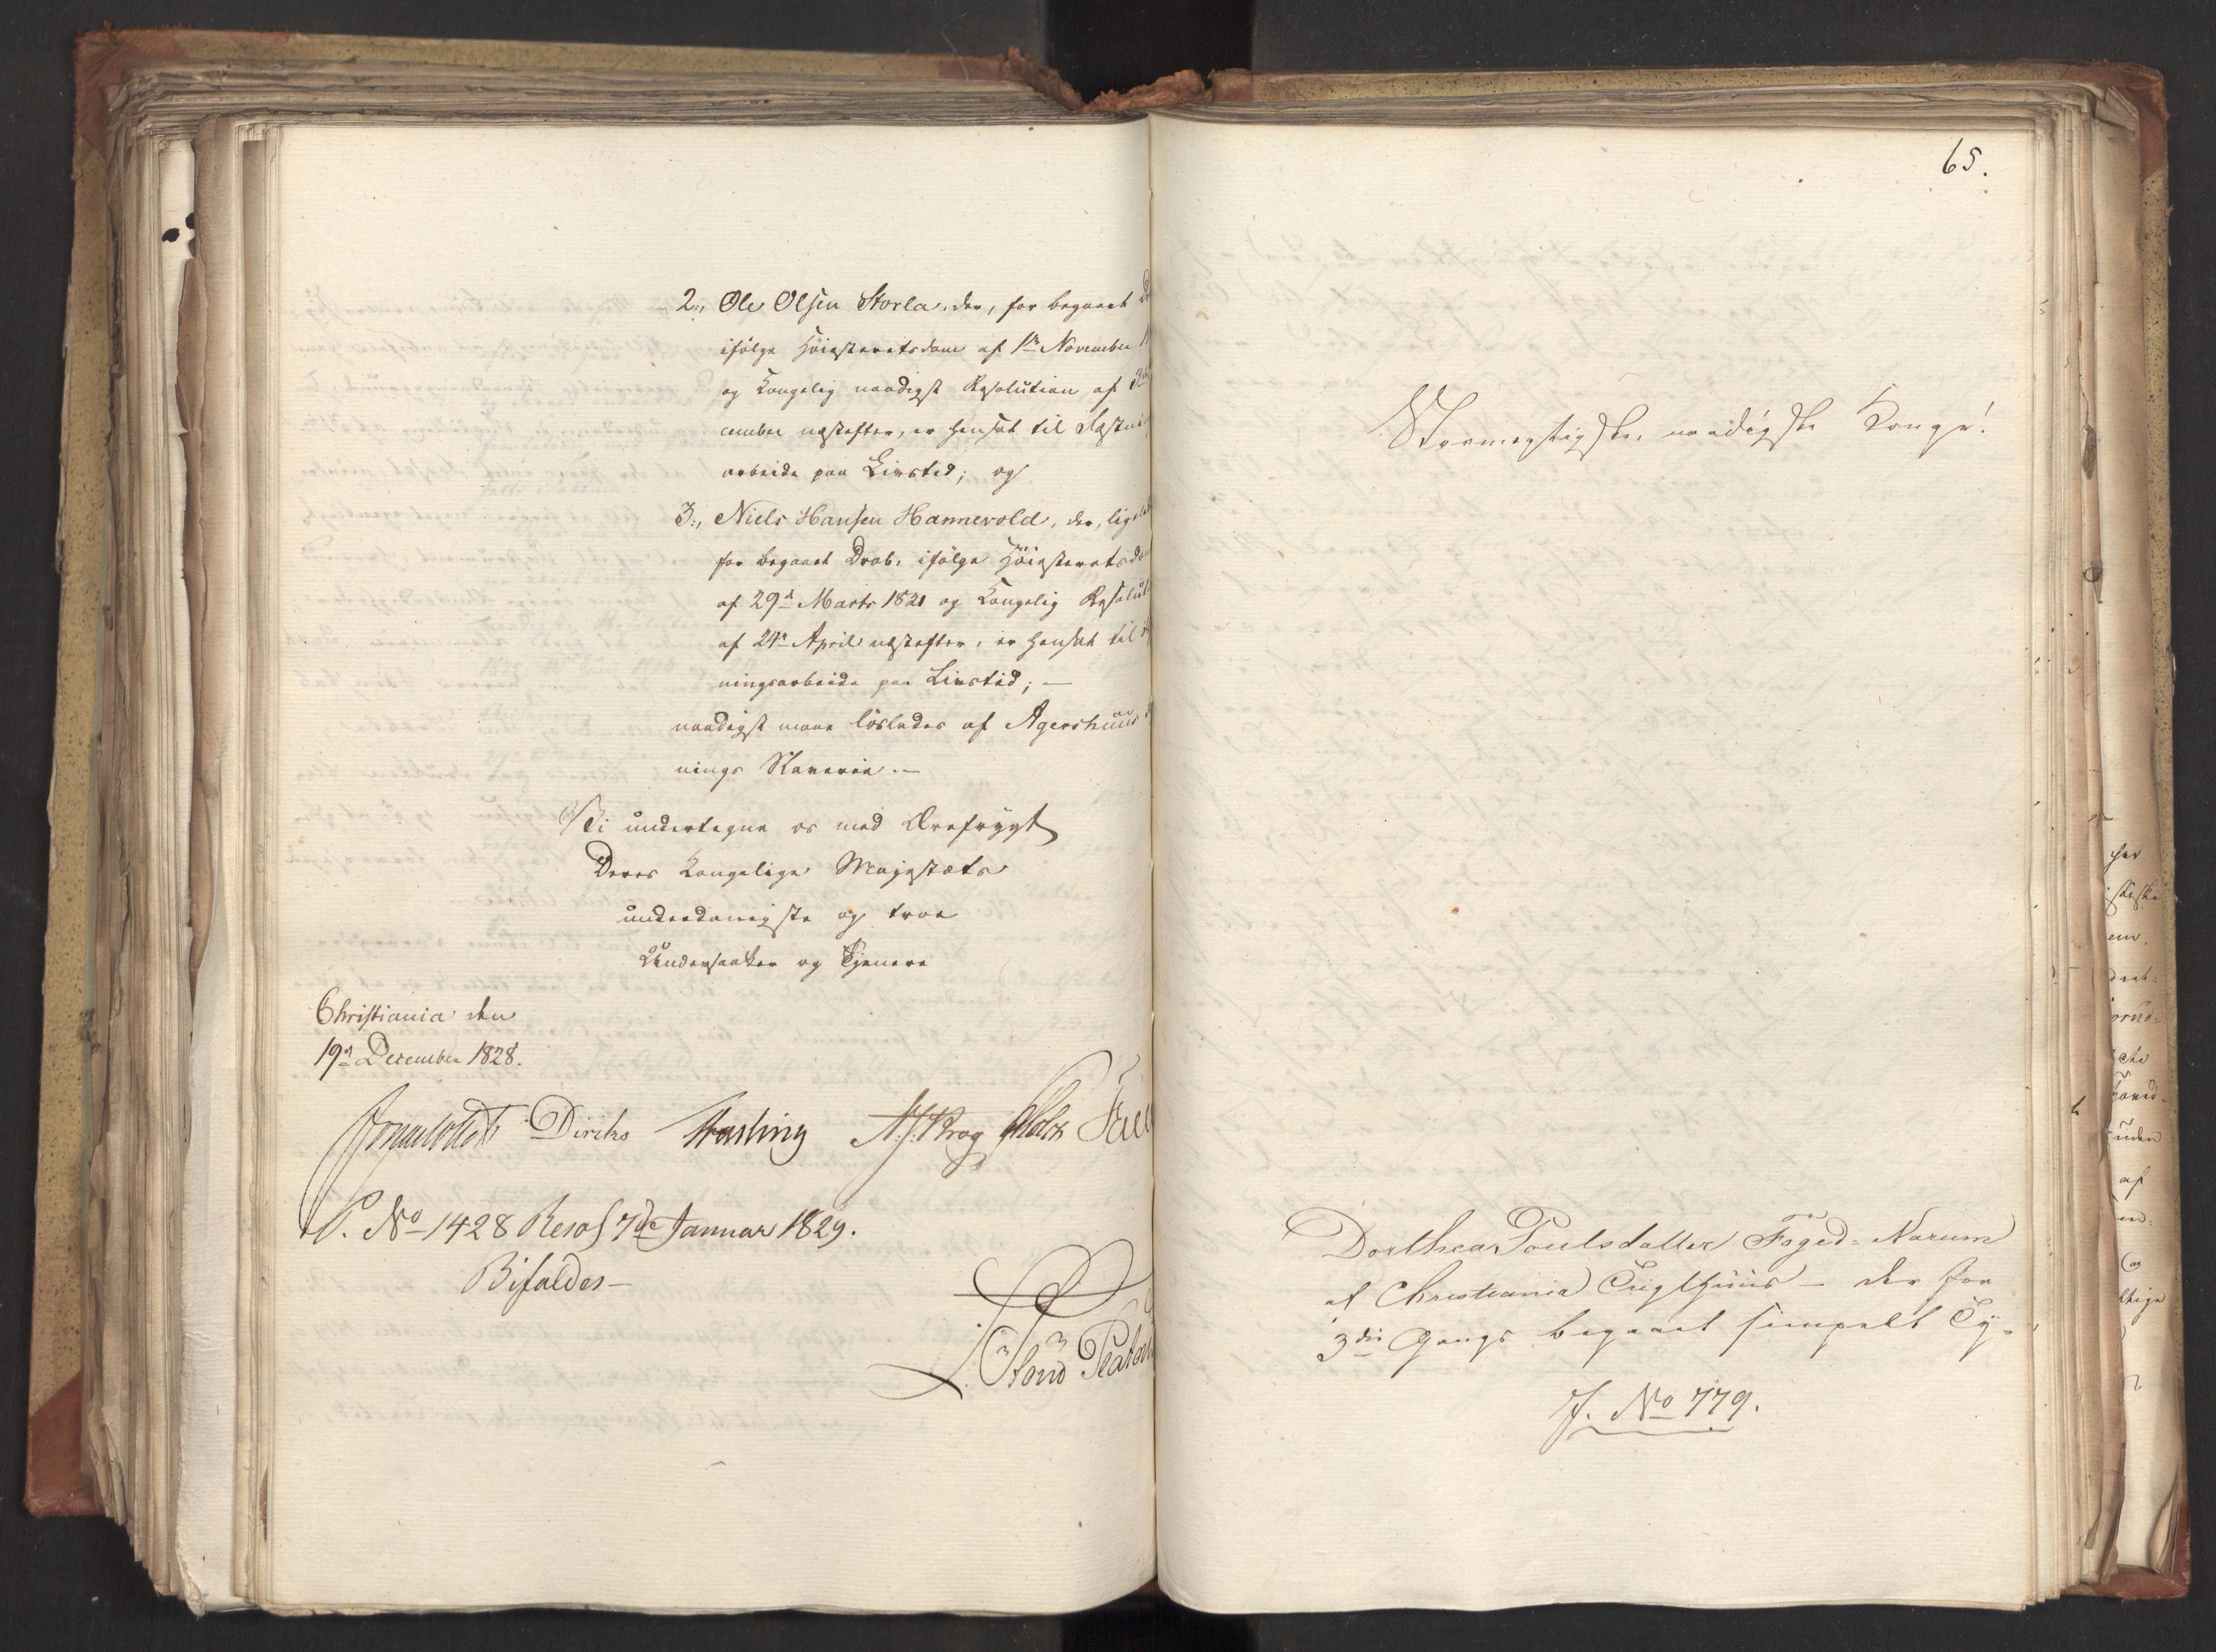 2., Ole Olsen Storla, der, for begaaet
ifølge Høiesteretsdom af 1ste November
og Kongelig naadigst Resolution af
cember næstefter, er hensat til Fæstni
arbeide paa Livstid; og
3., Niels Hansen Hannevold, der, lige
for begaaet Drab, ifølge Høiesteretsdo
af 29de Marts 1821 og Kongelig Resolut
af 24de April næstefter, er hensat til
ningsarbeide paa Livstid; —
naadigst maae løslades af Agershuus
nings Slaverie. —
Vi undertegne os med Ærefrygt
Deres Kongelige Majestæts
underdanigste og troe
Undersaatter og Tjenere
Christiania den
19de December 1828.
Diriks A. J. Krog Holst
P. No 1428 Resol 7de Januar 1829.
Bifaldes —
65.
Stormægtigste, naadigste Konge!
Dorthea Poulsdatter Foged-Narum
af Christiania Tugthuus — der for
3die Gangs begaaet simpelt Ty-
J. No 779.